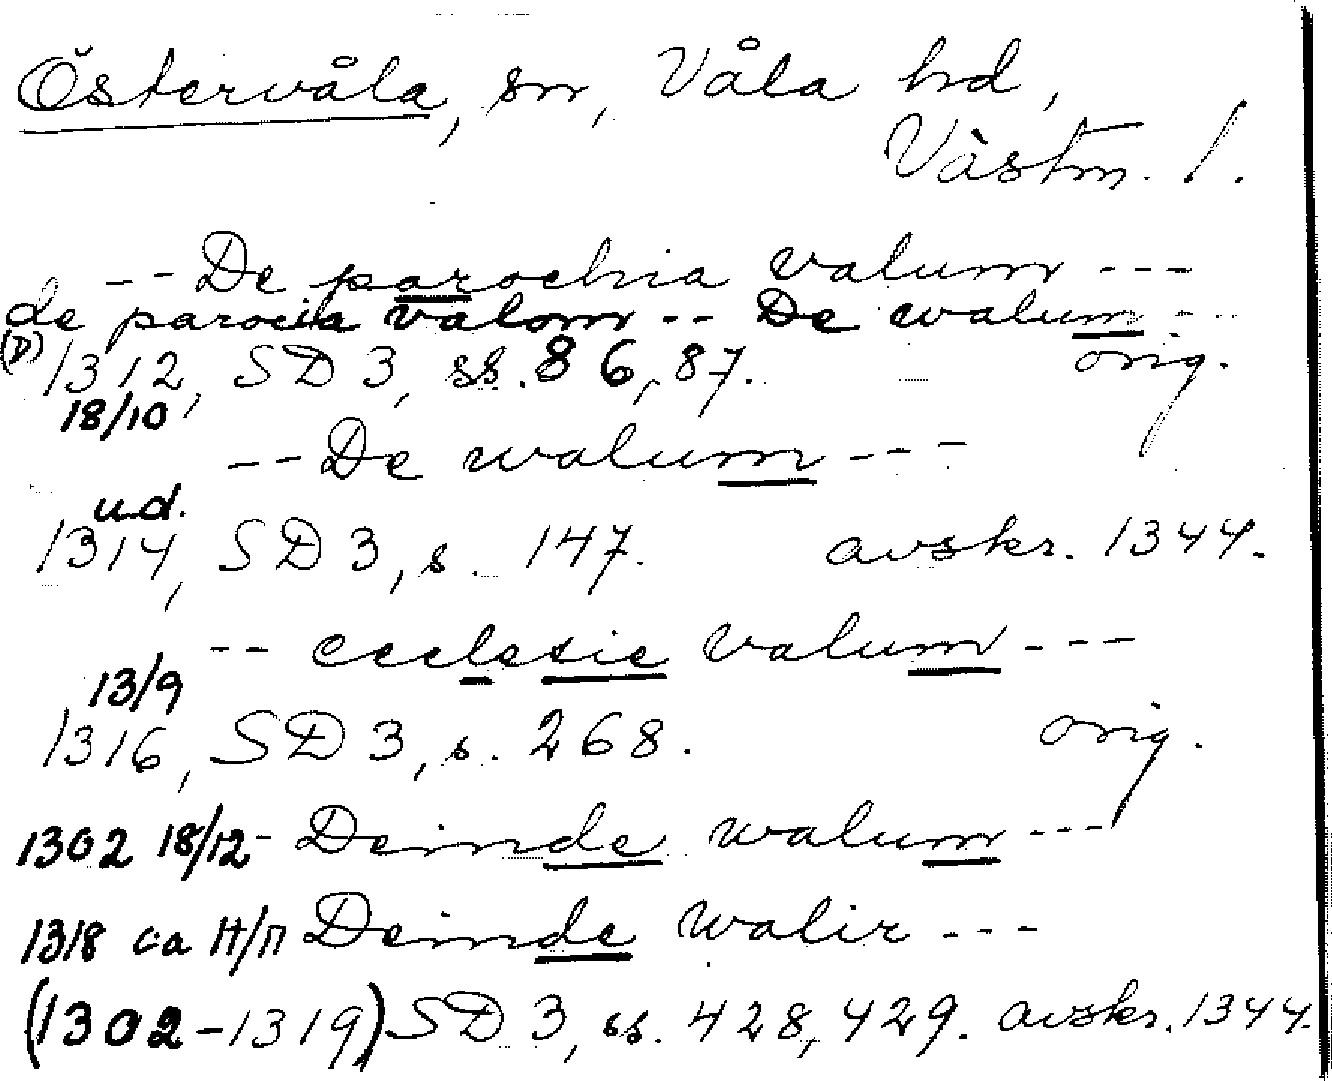 Östervåla, sn, Våla hd,
Västm. l.
-- De parochia valum ---
de parocia valom -- De walum ---
(D) 1312, SD 3, ss. 86, 87. orig.
18/10
-- De walum ---
u.d.
1314, SD 3, s. 147. avskr. 1344.
-- ecclesie valum ---
13/9
1316, SD 3, s. 268. orig.
1302 18/12 - Deinde walum ---
1318 ca Deinde walir ---
(1302-1319) SD 3, ss. 428, 429. avskr. 1344.